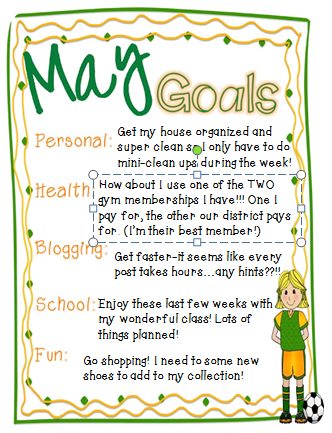 May Goals
Personal: Get my house organized and
super clean so I only have to do
mini-clean ups during the week!
Health: How about I use one of the TWO
gym memberships I have!!! One I
pay for, the other our district pays
for. (I'm their best member!)
Blogging:
Get faster-it seems like every
post takes hours...any hints??!!
School: Enjoy these last few weeks with
my wonderful class! Lots of
things planned!
Fun: Go shopping! I need to some new
shoes to add to my collection!